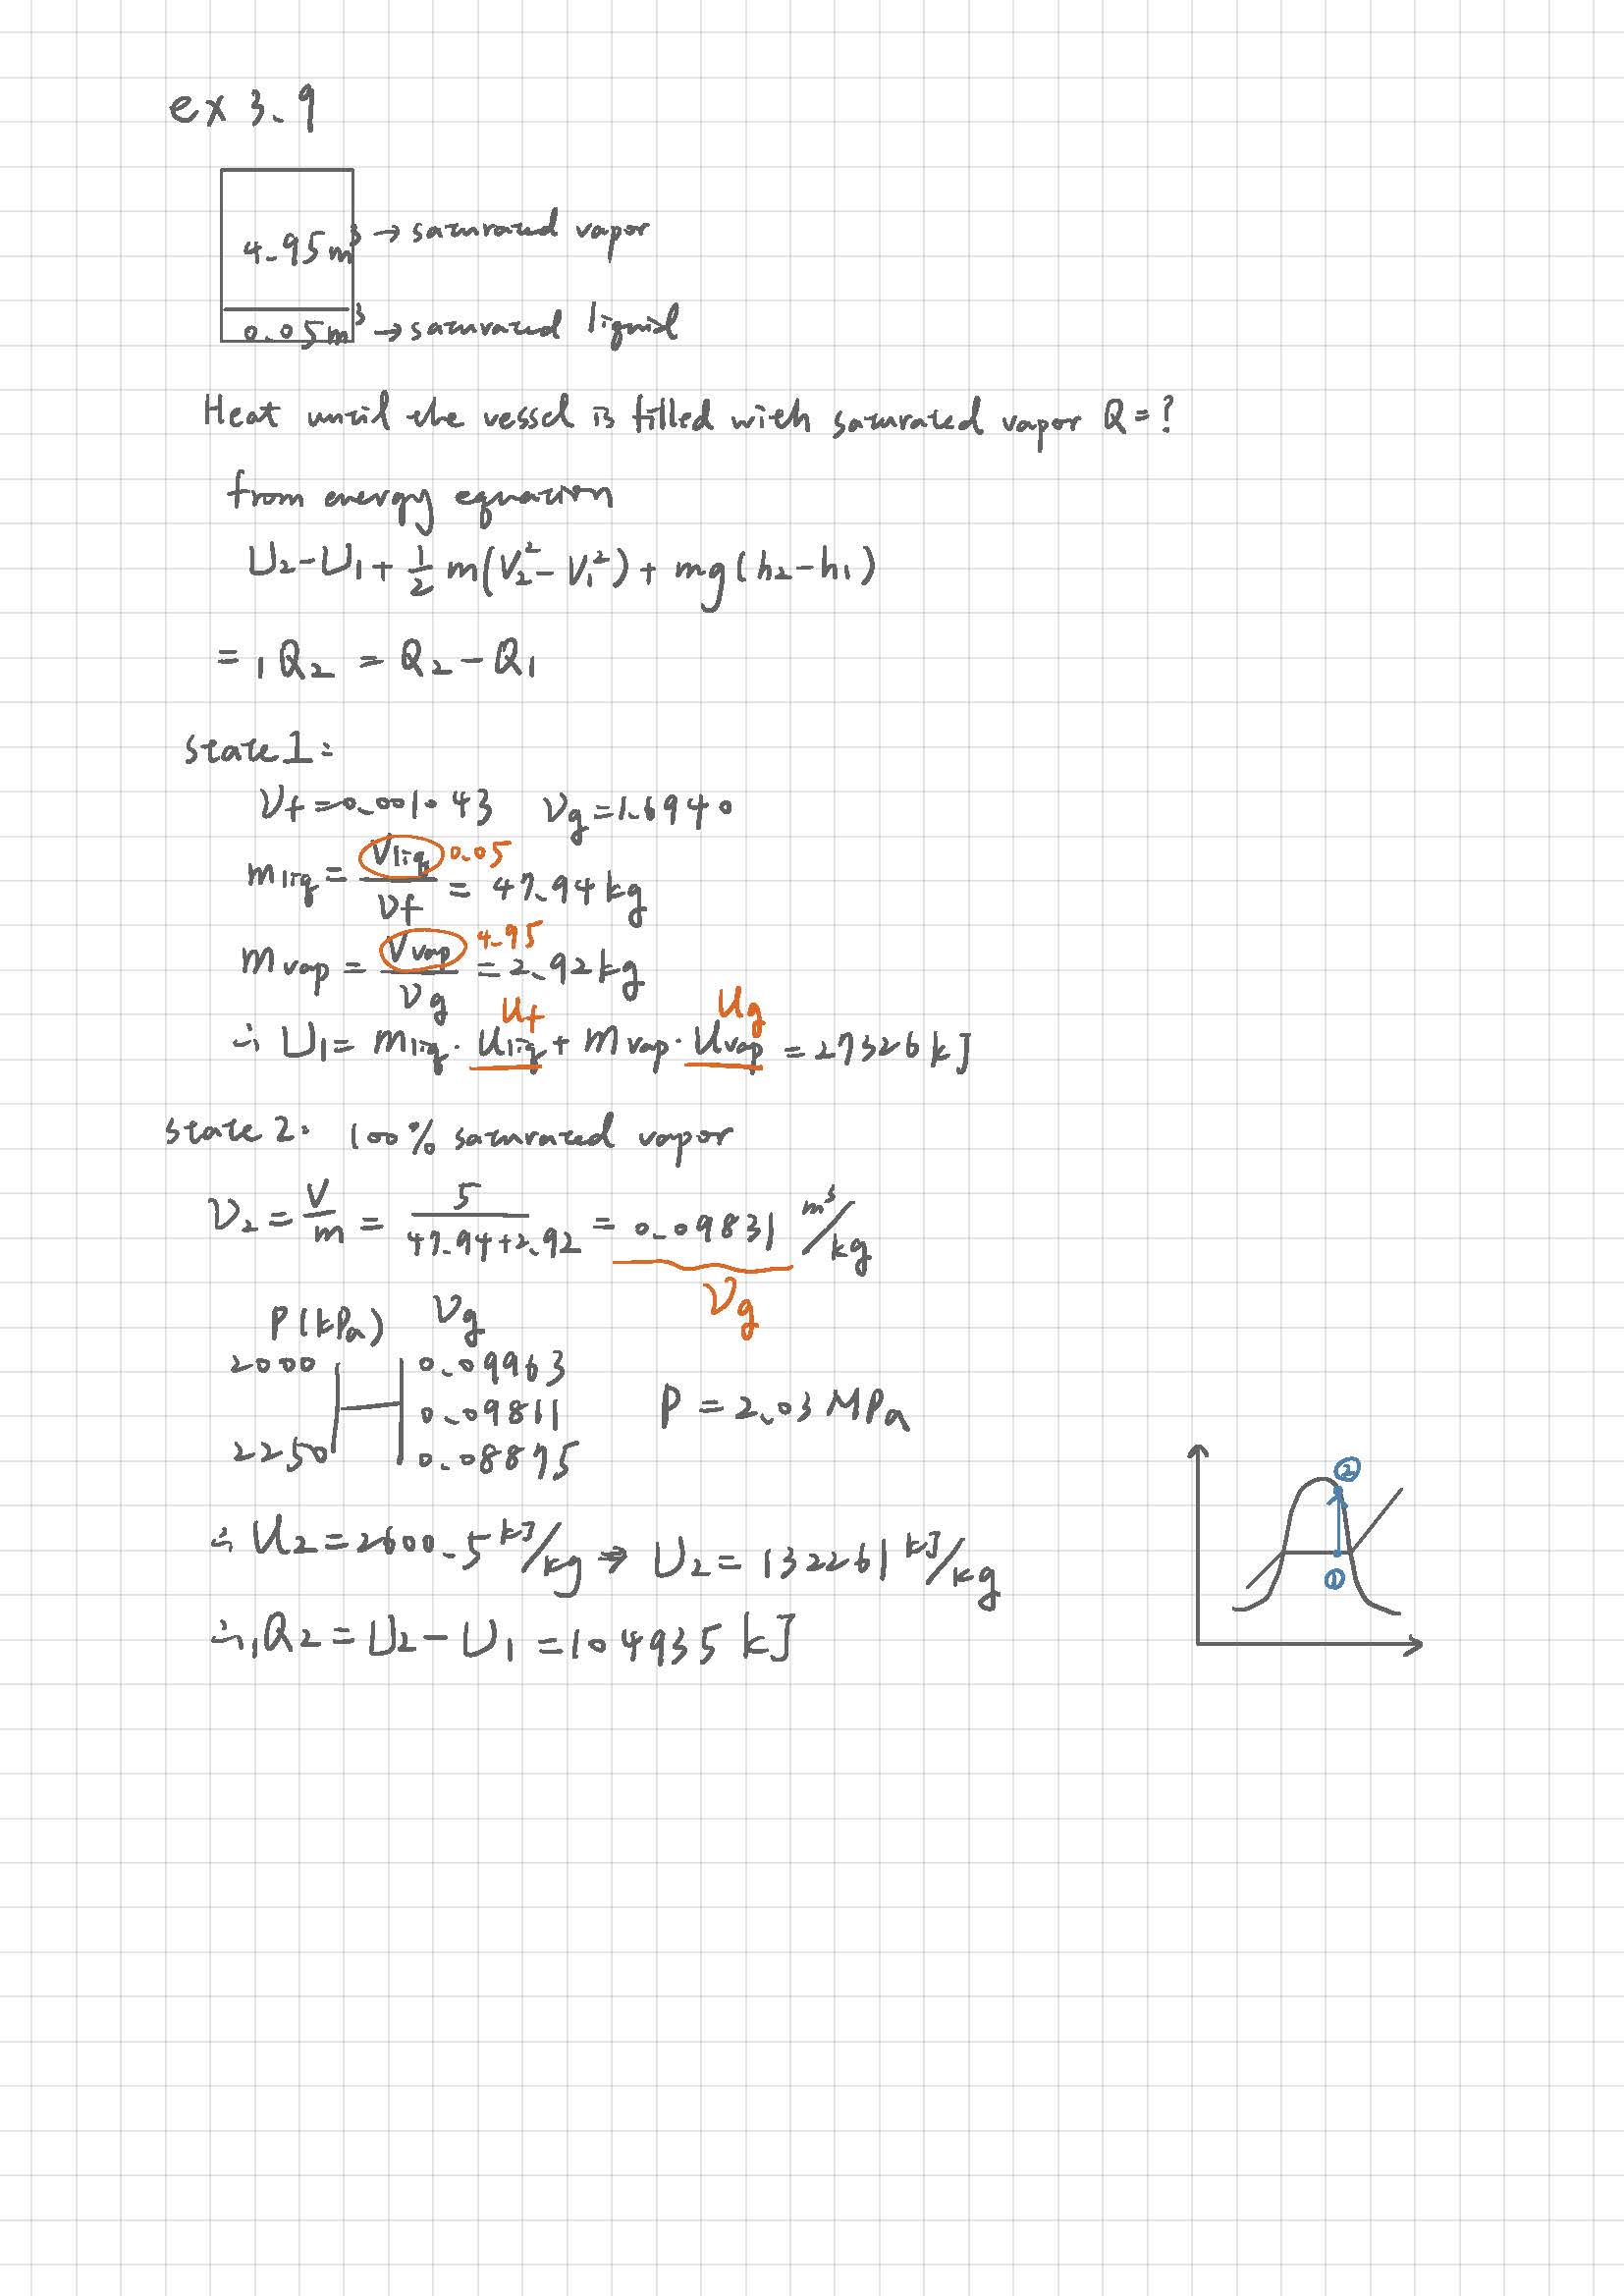 ex 3.9
4.95m³ → saturated vapor
0.05m³ → saturated liquid
Heat until the vessel is filled with saturated vapor Q=?
from energy equation
U₂-U₁+½m(V₂²-V₁²)+mg(h₂-h₁)
= ₁Q₂ = Q₂-Q₁
state1:
νf=0.001043 νg=1.6940
mliq = Vliq/νf = 47.94kg 0.05
mvap = Vvap/νg = 2.92kg 4.95
uf ug
∴ U₁= mliq·uliq+mvap·uvap = 27326kJ
state 2: 100% saturated vapor
ν₂ = V/m = 5/(47.94+2.92) = 0.09831 m³/kg
νg
P(kPa) νg
2000 0.09963
0.09811 P = 2.03 MPa
2250 0.08875
②
∴ u₂=2600.5 kJ/kg → U₂=132261 kJ/kg
①
∴ ₁Q₂=U₂-U₁=104935 kJ